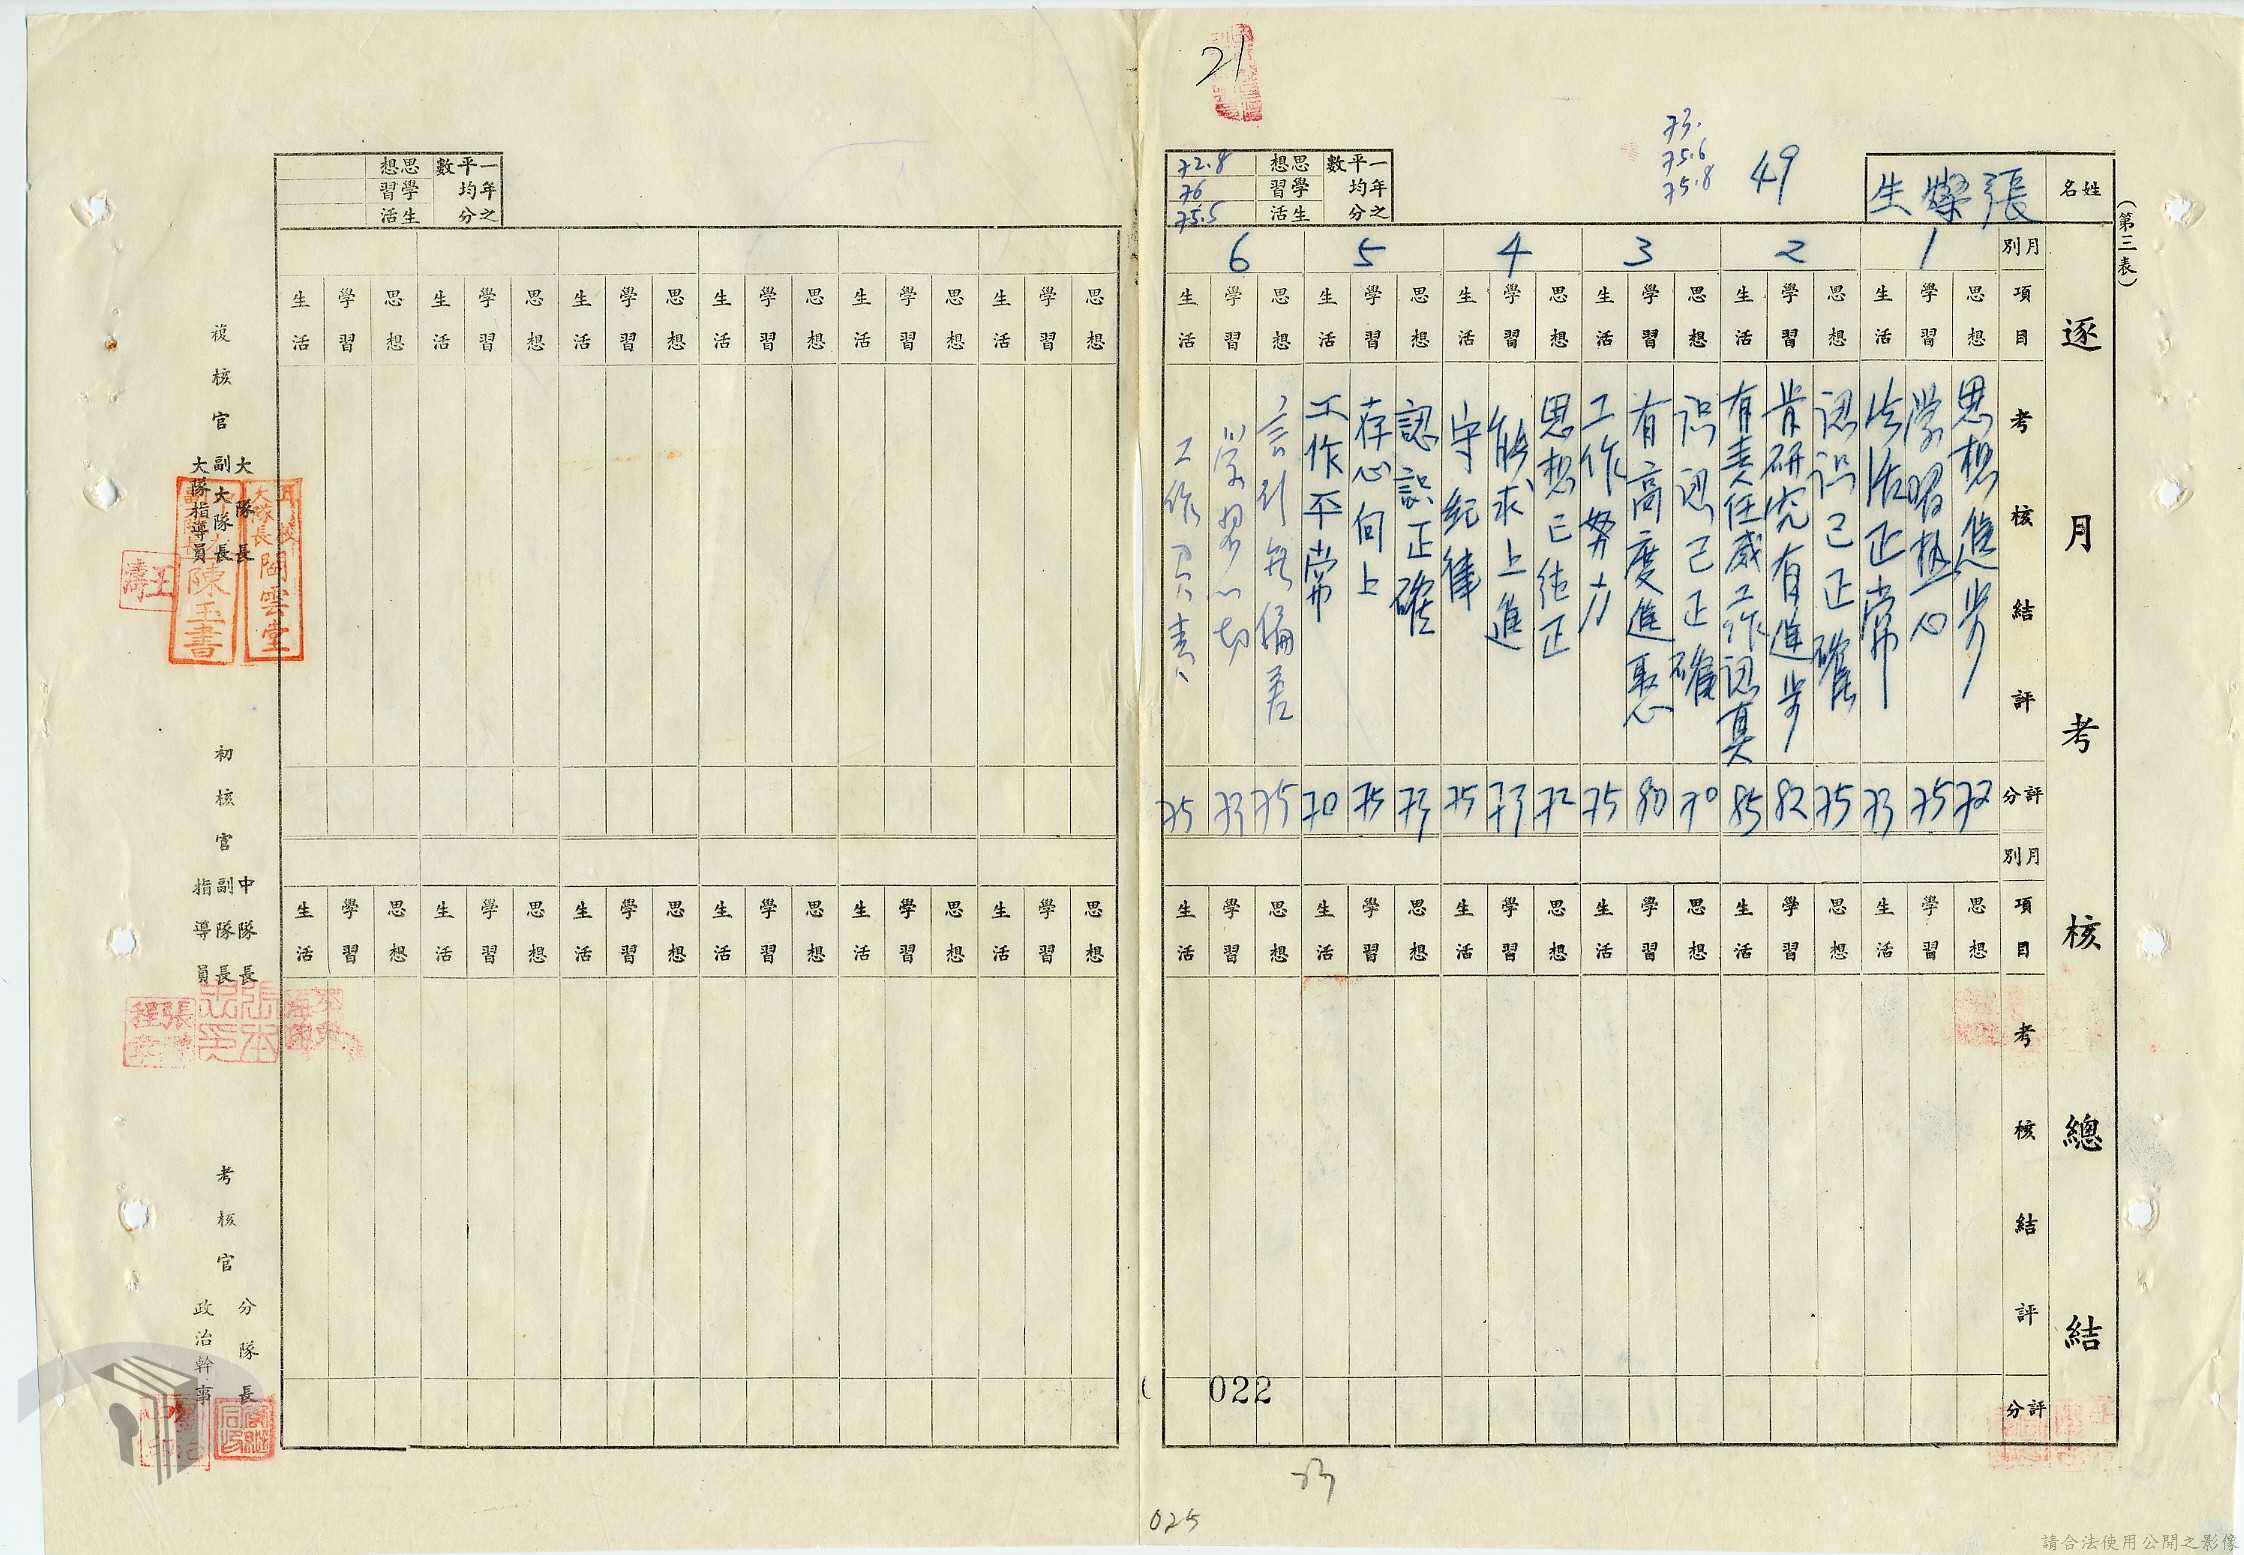 21
73.
75.6
75.8
49
(第三表)
逐月考核總結
姓名
張燦生
一年之平均分數
思想 72.8
學習 76
生活 75.5
月別
項目
考核結評
評分
1
思想 思想進步 72
學習 學習熱心 75
生活 生活正常 73
2
思想 認识已正確 75
學習 肯研究有進步 82
生活 有責任感工作认真 85
3
思想 识认已正確 70
學習 有高度進取心 80
生活 工作努力 75
4
思想 思想已純正 72
學習 能求上進 73
生活 守紀律 75
5
思想 認識正確 73
學習 存心向上 75
生活 工作不常 70
6
思想 言行無偏差 75
學習 學習心切 73
生活 工作負責 75
月別
項目
考核結評
評分
思想
學習
生活
思想
學習
生活
思想
學習
生活
思想
學習
生活
思想
學習
生活
思想
學習
生活
022
73
025
一年之平均分數
思想
學習
生活
思想
學習
生活
思想
學習
生活
思想
學習
生活
思想
學習
生活
思想
學習
生活
思想
學習
生活
思想
學習
生活
思想
學習
生活
思想
學習
生活
思想
學習
生活
思想
學習
生活
思想
學習
生活
複核官
大隊長
副大隊長
大隊指導員
大隊長 閻雲堂
陳玉書
王濤
初核官
中隊長
副隊長
指導員
考核官
分隊長
政治幹事
請合法使用公開之影像